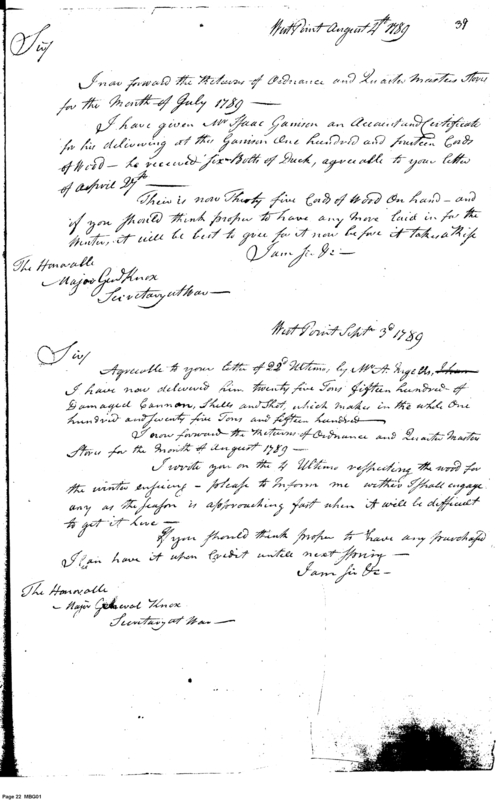 39
West Point August 4th 1789
Sir/
I now forward the Returns of Ordnance and Quarter Masters Stores
for the Month of July 1789 —
I have given Mr Isaac Garrison an Account and Certificate
for his delivering at the Garrison One hundred and fourteen Cords
of Wood — he received Six Bolts of Duck, agreeable to your letter
of April 27th —
Their is now Thirty five Cords of Wood On hand — and
if you should think proper to have any more laid in for the
Winter, it will be best to gree for it now before it takes a Rise
I am Sir &c —
The Honorable
Major Genl Knox
Secretary at War —
West Point Sept 3d 1789
Sir/
Agreeable to your letter of 22d Ultimo, by Mr A
I have now delivered him twenty five Tons fifteen hundred of
Damaged Cannon, Shells and Shot, which makes in the whole One
hundred and twenty five Tons and fifteen hundred —
I now forward the Returns of Ordnance and Quarter Master
Stores for the Month of August 1789 —
I wrote you on the 4 Ultimo respecting the wood for
the winter ensuing — please to Inform me wether I shall engage
any as the season is approaching fast when it will be difficult
to get it here —
If you should think proper to have any purchased
I can have it upon Credit untill next Spring —
I am Sir &c —
The Honorable
Major General Knox
Secretary at War —
Page 22 MBG01